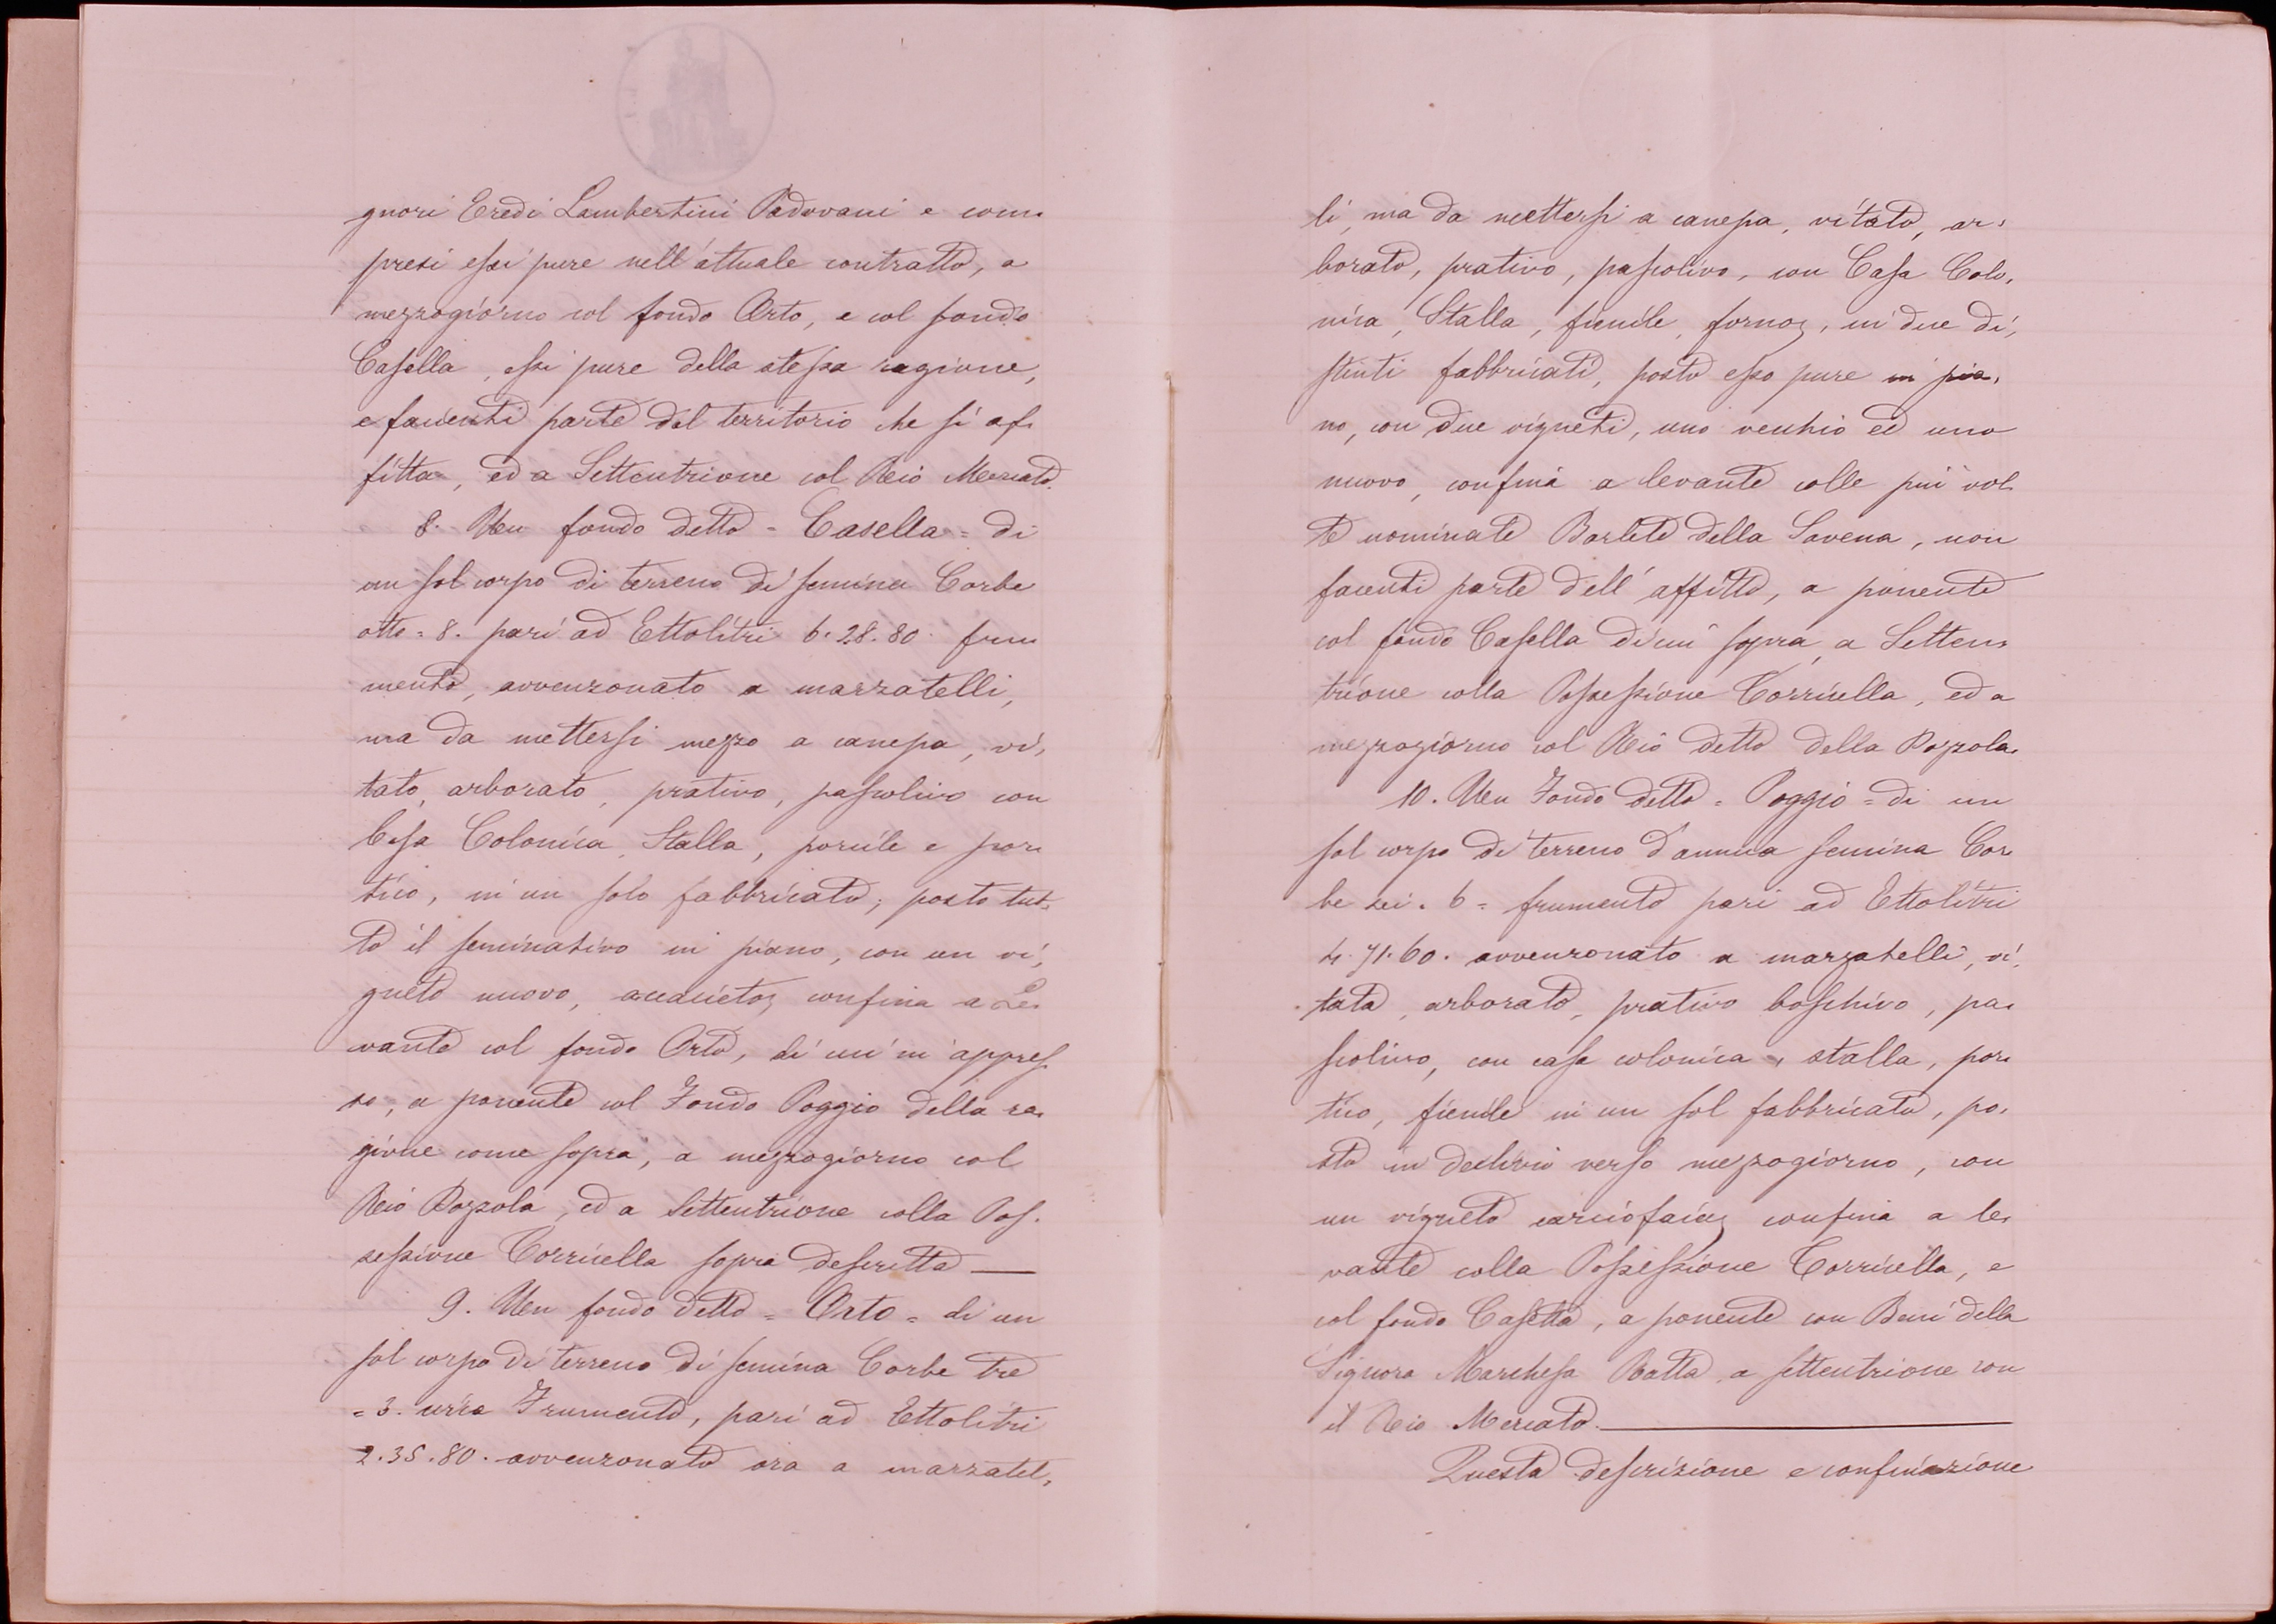 gnori Eredi Lambertini Padovani e com-
presi essi pure nell'attuale contratto, a
mezzogiorno col fondo Orto, e col fondo
Casella, essi pure della stessa ragione,
e facienti parte del territorio che si af-
fitta, ed a Settentrione col Rio Mercato.
8. Un fondo detto = Casella = di
un sol corpo di terreno di semina Corbe
otto = 8. pari ad Ettolitri 6. 28. 80. fru-
mento, avvenzonato a marzatelli,
ma da mettersi mezzo a canepa, vi-
tato, arborato, prativo, pascolivo con
Casa Colonica, Stalla, porcile e por-
tico, in un solo fabbricato; posto tut-
to il seminativo in piano, con un vi-
gneto nuovo, confina a Le-
vante col fondo Orto, di cui in appres-
so, a ponente col Fondo Poggio della ra-
gione come sopra, a mezzogiorno col
Rio Pozzola, ed a Settentrione colla Pos-
sessione Torricella sopra descritta —
9. Un fondo detto = Orto = di un
sol corpo di terreno di semina Corbe tre
= 3. circa Frumento, pari ad Ettolitri
2. 35. 80. avvenzonato ora a marzatel-
li, ma da mettersi a canepa, vitato, ar-
borato, prativo, pascolivo, con Casa Colo-
nica, Stalla, fienile, forno, in due di-
stinti fabbricati, posto esso pure in pia-
no, con due vigneti, uno vecchio ed uno
nuovo, confina a levante colle più vol-
te nominate Barlete della Savena, non
facenti parte dell'affitto, a ponente
col fondo Casella di cui sopra, a Setten-
trione colla Possessione Torricella, ed a
mezzogiorno col Rio detto della Pozzola.
10. Un Fondo detto = Poggio = di un
sol corpo di terreno d'annua semina Cor-
be sei = 6 = frumento pari ad Ettolitri
4. 71. 60. avvenzonato a marzatelli, vi-
tata, arborato, prativo boschivo, pa-
scolivo, con casa colonica, stalla, por-
tico, fienile in un sol fabbricato, po-
sto in declivio verso mezzogiorno, con
un vigneto carciofaia, confina a le-
vante colla Possessione Torricella, e
col fondo Casetta, a ponente con Beni della
Signora Marchesa Ratta, a settentrione con
il Rio Mercato. —
Questa descrizione e confinazione